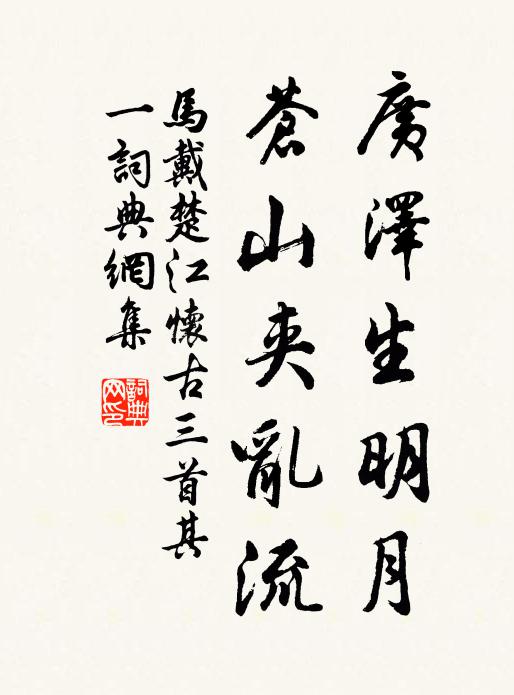 廣澤生明月
蒼山夾亂流
馬戴楚江懷古三首其
一詞典網集
詞典网印